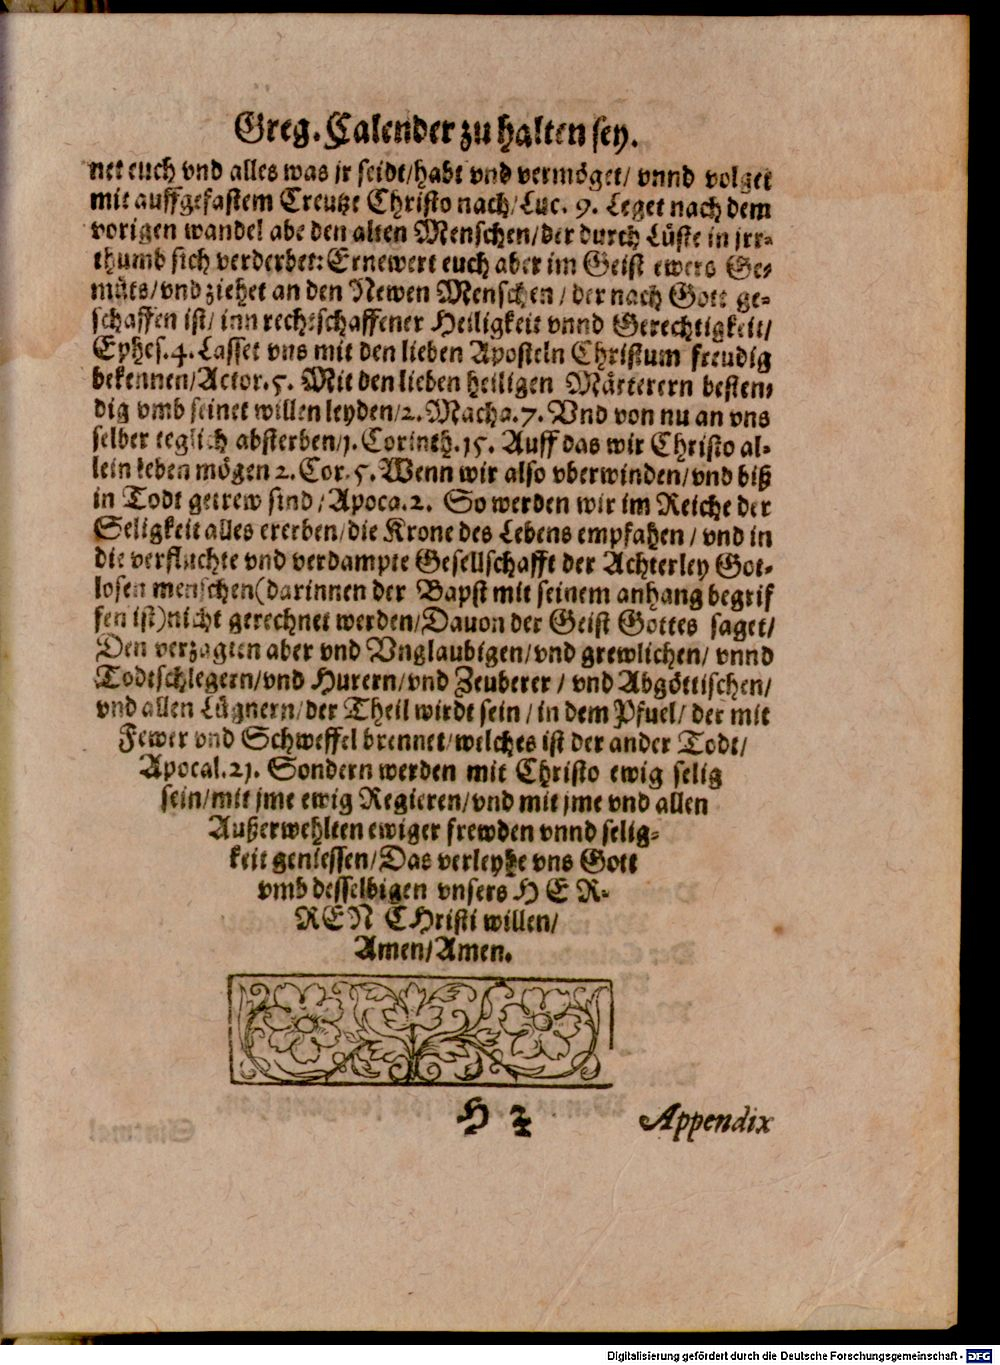 Greg. Calender zu halten sey.
net euch vnd alles was jr seidt/habt vnd vermöget/ vnnd volget
mit auffgefastem Creutze Christo nach/Luc. 9. Leget nach dem
vorigen wandel abe den alten Menschen/der durch Lüste in jrr-
thumb sich verderbet: Ernewert euch aber im Geist ewers Ge-
müts/vnd ziehet an den Newen Menschen / der nach Gott ge-
schaffen ist/ inn rechtschaffener Heiligkeit vnnd Gerechtigkeit/
Ephes. 4. Lasset vns mit den lieben Aposteln Christum freudig
bekennen/Actor. 5. Mit den lieben heiligen Märterern besten-
dig vmb seinet willen leyden/2. Macha. 7. Vnd von nu an vns
selber teglich absterben/1. Corinth. 15. Auff das wir Christo al-
lein leben mögen 2. Cor. 5. Wenn wir also vberwinden/vnd biß
in Todt getrew sind / Apoca. 2. So werden wir im Reiche der
Seligkeit alles ererben/die Krone des Lebens empfahen / vnd in
die verfluchte vnd verdampte Gesellschafft der Achterley Got-
losen menschen(darinnen der Bapst mit seinem anhang begrif
fen ist)nicht gerechnet werden/Dauon der Geist Gottes saget/
Den verzagten aber vnd Vnglaubigen/vnd grewlichen/ vnnd
Todtschlegern/vnd Hurern/vnd Zeuberer / vnd Abgöttischen/
vnd allen Lügnern/der Theil wirdt sein / in dem Pfuel/ der mit
Fewer vnd Schweffel brennet/welches ist der ander Todt/
Apocal. 21. Sondern werden mit Christo ewig selig
sein/mit jme ewig Regieren/vnd mit jme vnd allen
Außerwehlten ewiger frewden vnnd selig-
keit geniessen/Das verleyhe vns Gott
vmb desselbigen vnsers HER-
REN CHristi willen/
Amen/Amen.
H 2 Appendix
Digitalisierung gefördert durch die Deutsche Forschungsgemeinschaft - DFG